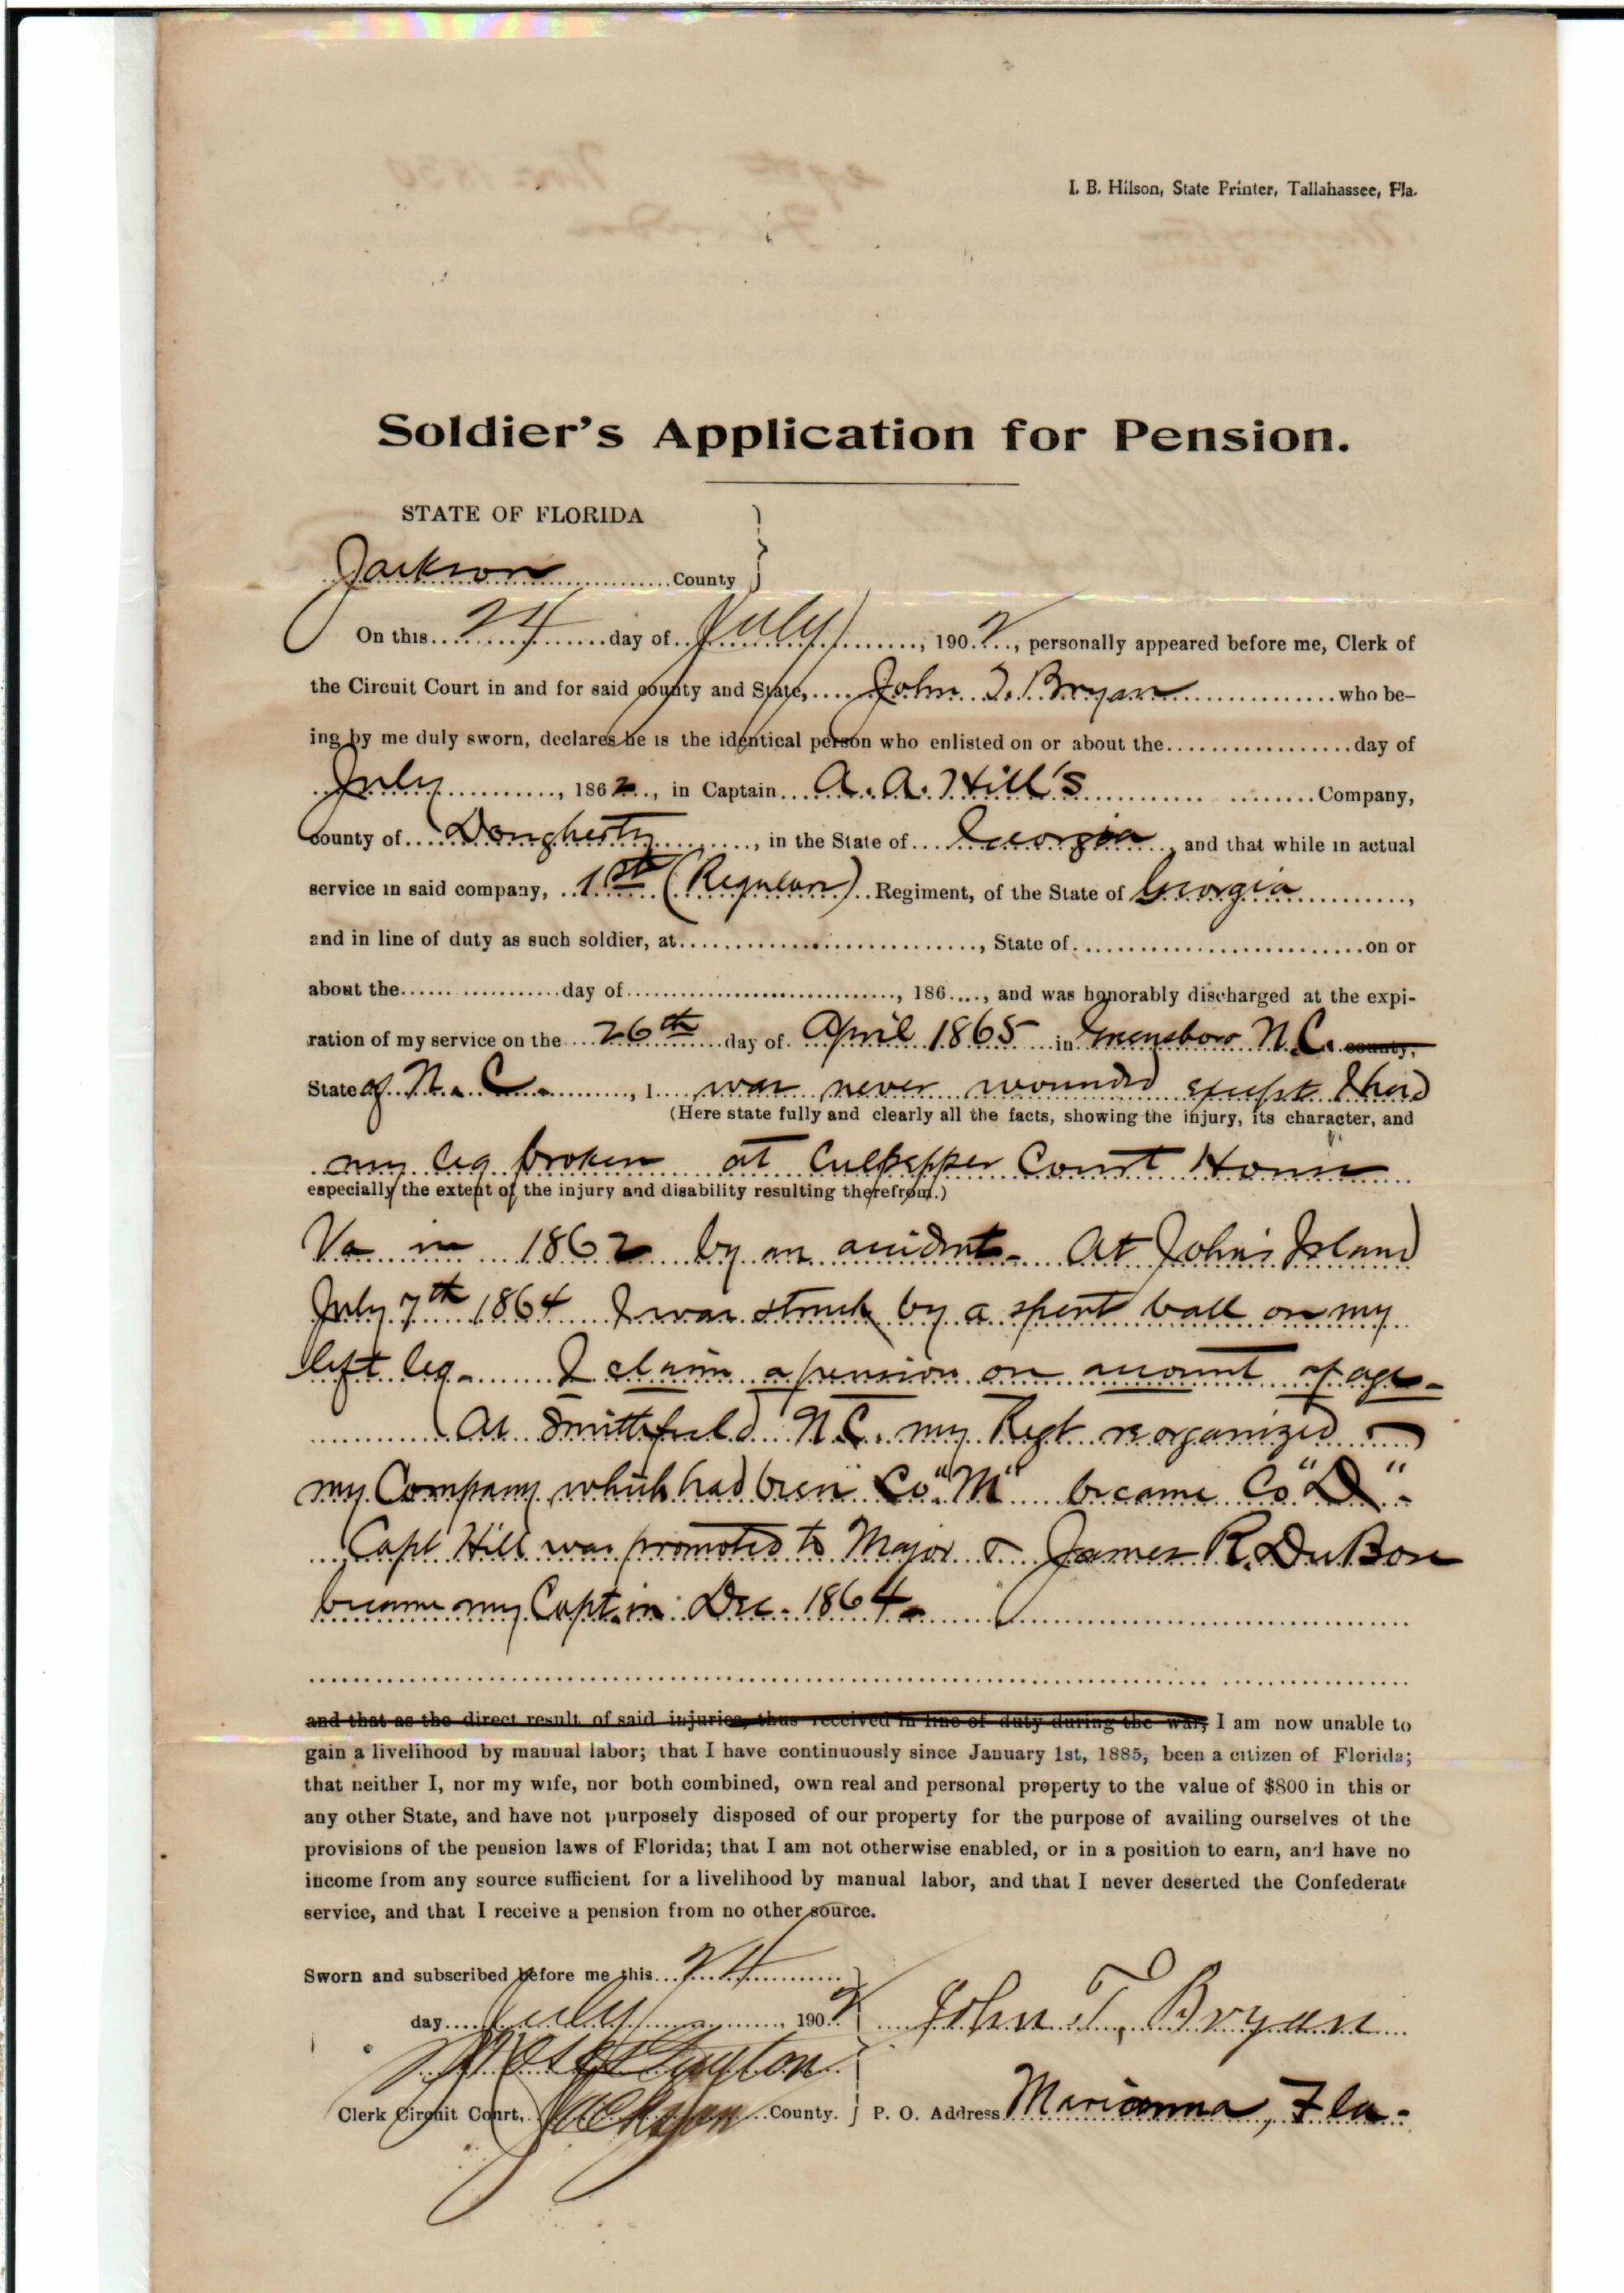 I. B. Hilson, State Printer, Tallahassee, Fla.
Soldier's Application for Pension.
STATE OF FLORIDA
Jackson County
On this 24 day of July, 1902, personally appeared before me, Clerk of
the Circuit Court in and for said county and State, John T. Bryan who be-
ing by me duly sworn, declares he is the identical person who enlisted on or about the day of
July, 1862, in Captain A. A. Hill's Company,
county of Dougherty, in the State of Georgia, and that while in actual
service in said company, 1st (Regulars) Regiment, of the State of Georgia,
and in line of duty as such soldier, at, State of on or
about the day of, 186, and was honorably discharged at the expi-
ration of my service on the 26th day of April 1865 in Greensboro N.C. county,
State of N. C., I was never wounded except I had
(Here state fully and clearly all the facts, showing the injury, its character, and
my leg broken at Culpepper Court House
especially the extent of the injury and disability resulting therefrom.)
Va in 1862 by an accident - At John's Island
July 7th 1864 I was struck by a spent ball on my
left leg - I claim a pension on account of age -
At Smithfield N.C. my Regt reorganized
my Company which had been Co "M" became Co "D".
Capt Hill was promoted to Major & James R. DuBose
became my Capt. in Dec. 1864 -
and that as the direct result of said injuries, thus received in line of duty during the war, I am now unable to
gain a livelihood by manual labor; that I have continuously since January 1st, 1885, been a citizen of Florida;
that neither I, nor my wife, nor both combined, own real and personal property to the value of $800 in this or
any other State, and have not purposely disposed of our property for the purpose of availing ourselves of the
provisions of the pension laws of Florida; that I am not otherwise enabled, or in a position to earn, and have no
income from any source sufficient for a livelihood by manual labor, and that I never deserted the Confederate
service, and that I receive a pension from no other source.
Sworn and subscribed before me this 24
day July, 1902 John T. Bryan
Clerk Circuit Court, Jackson County. P. O. Address Marianna, Fla -